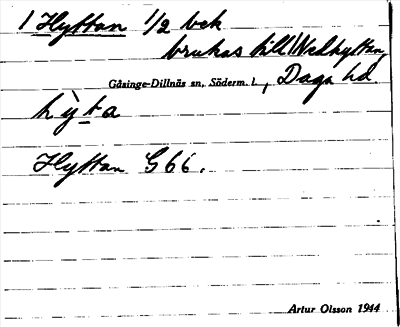 1 Hyttan 1/2 bek
brukas till Nedhyttan,
Gåsinge-Dillnäs sn, Söderm. l., Daga hd.
hỳta
Hyttan G66.
Artur Olsson 1944